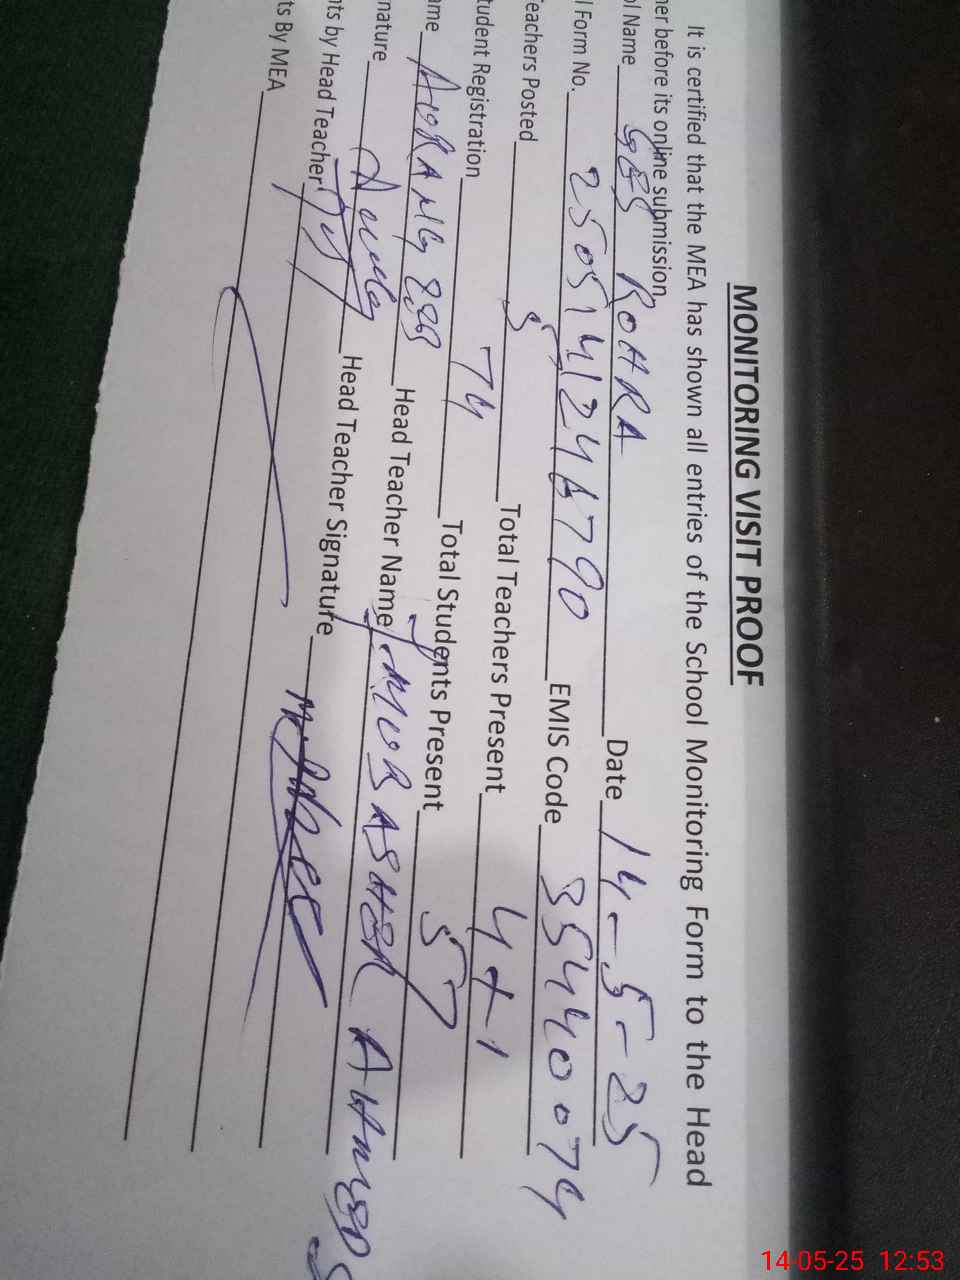 MONITORING VISIT PROOF
It is certified that the MEA has shown all entries of the School Monitoring Form to the Head
her before its online submission.
ol Name GES ROHRA Date 14-5-25
l Form No. 2505141246790 EMIS Code 35440074
eachers Posted 5 Total Teachers Present 4+1
tudent Registration 74 Total Students Present 57
ame AURANG ZEB Head Teacher Name MUBASHER AHMED
nature Head Teacher Signature
nts by Head Teacher
ts By MEA
14-05-25 12:53